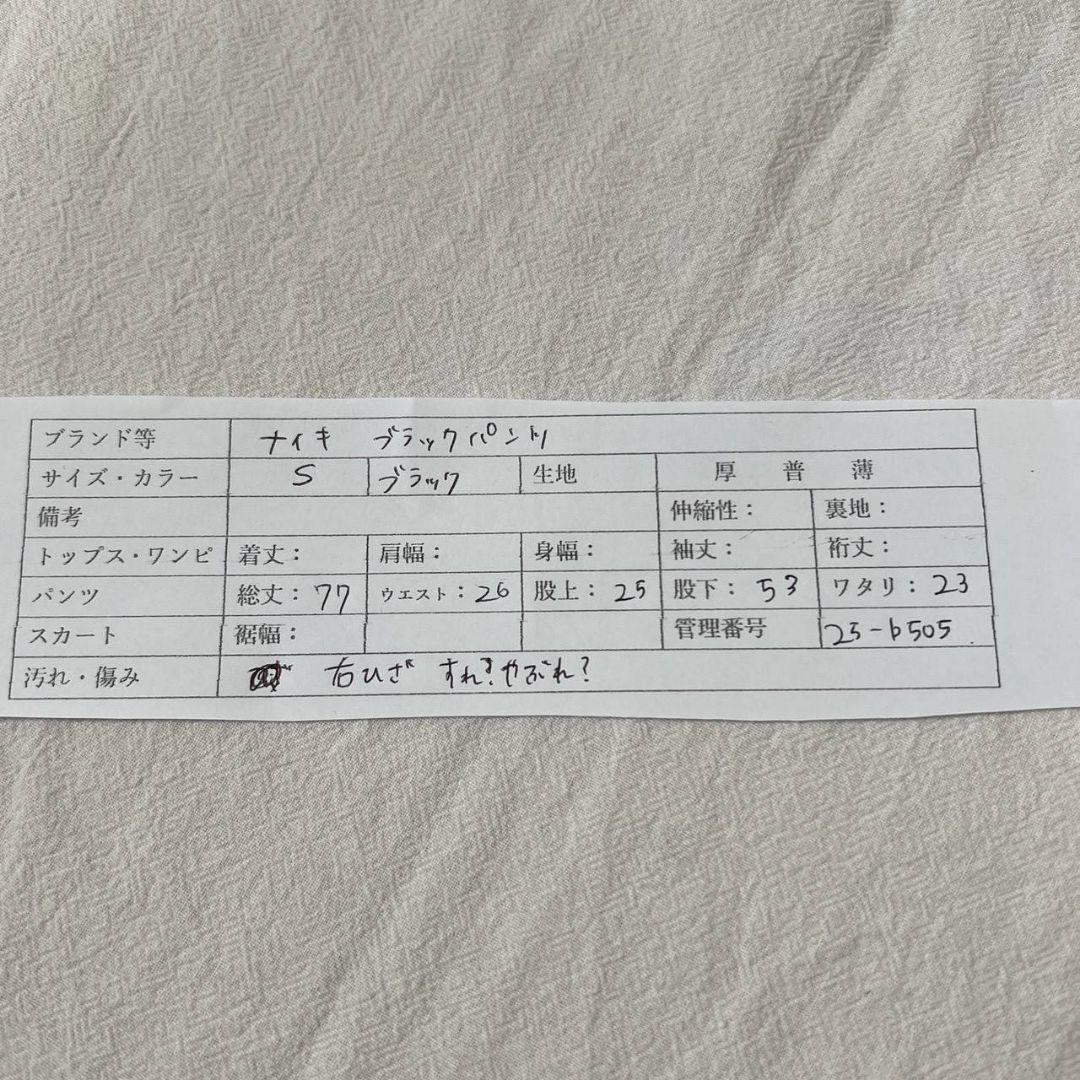 ブランド等 ナイキ ブラックパンツ
サイズ・カラー S ブラック 生地 厚 普 薄
備考 伸縮性： 裏地：
トップス・ワンピ 着丈： 肩幅： 身幅： 袖丈： 裄丈：
パンツ 総丈：77 ウエスト：26 股上：25 股下：53 ワタリ：23
スカート 裾幅： 管理番号 25-b505
汚れ・傷み 右ひざ すれ？やぶれ？